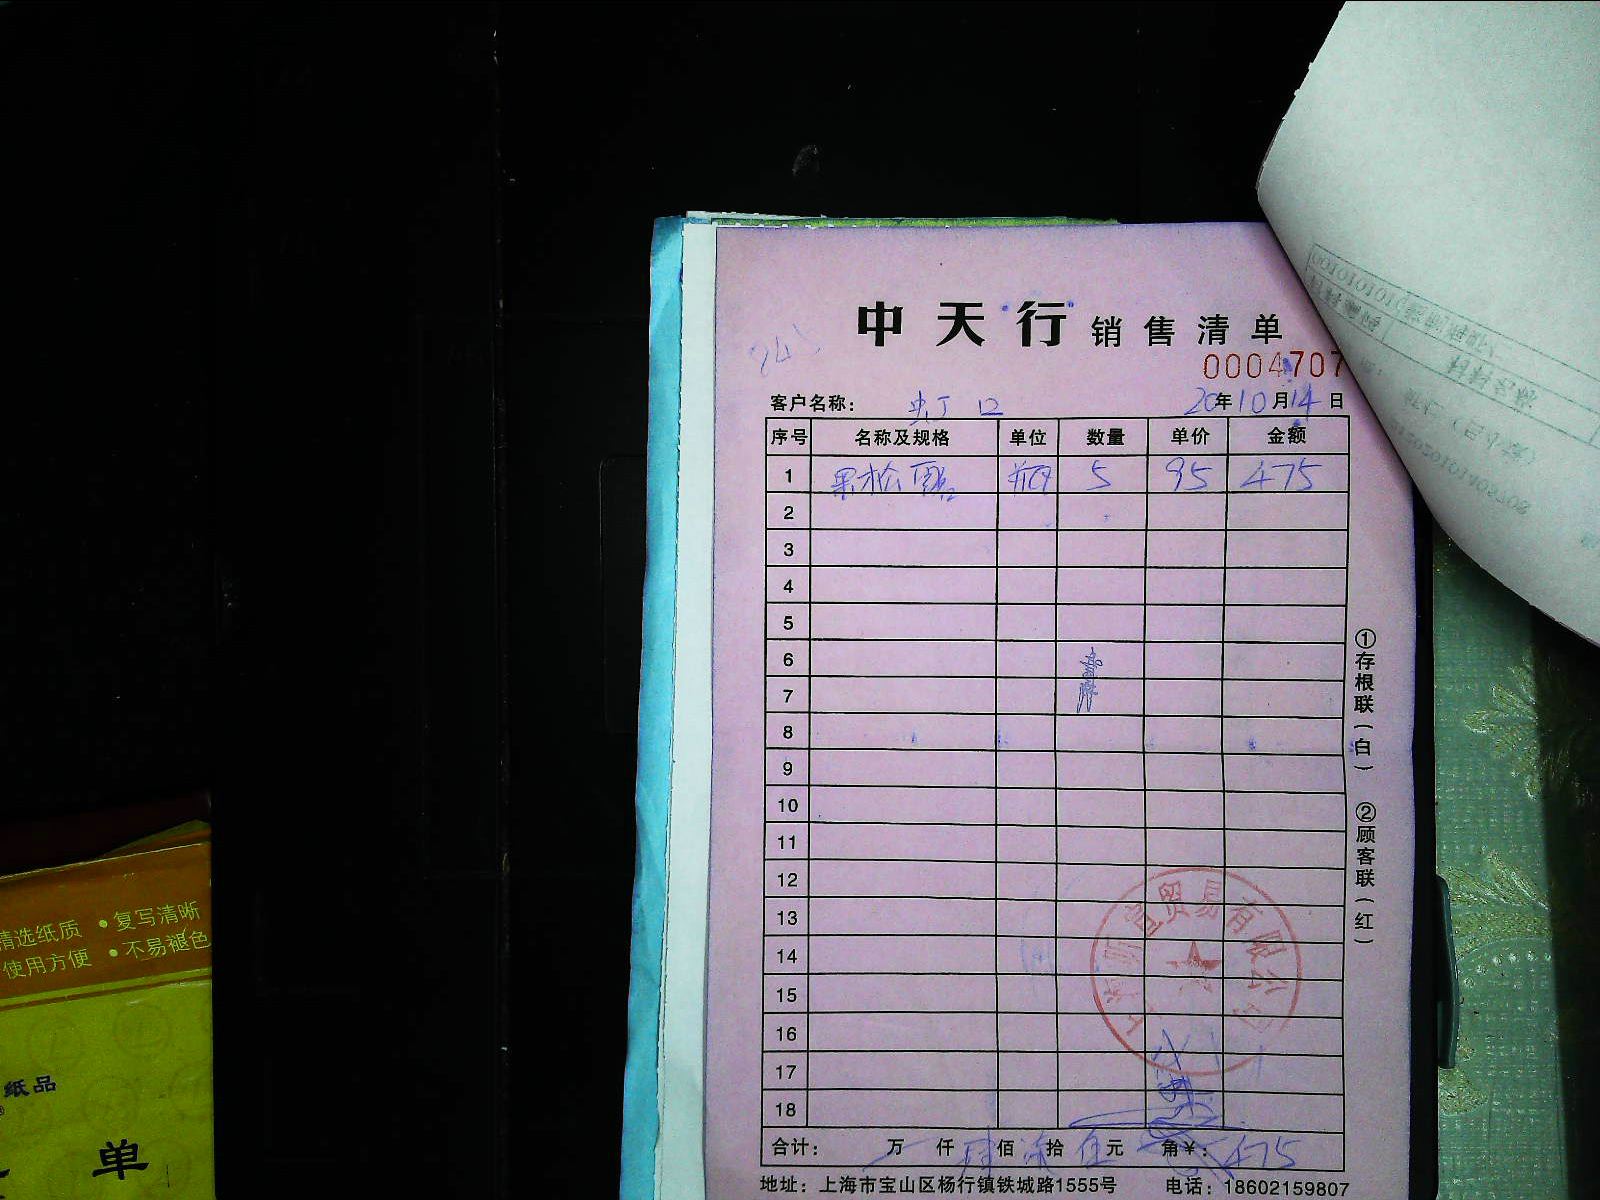 中天行 销售清单
0004707
客户名称： 虹口 20年10月14日
序号 名称及规格 单位 数量 单价 金额
1 黑松露 瓶 5 95 475
2
3
4
5
6
7
8
9
10
11
12
13
14
15
16
17
18
合计： 万 仟 肆佰 柒拾 伍元 角￥：475
地址：上海市宝山区杨行镇铁城路1555号 电话：18602159807
①存根联（白）
②顾客联（红）
贸易有限公司
精选纸质 •复写清晰
使用方便 •不易褪色
纸品
单